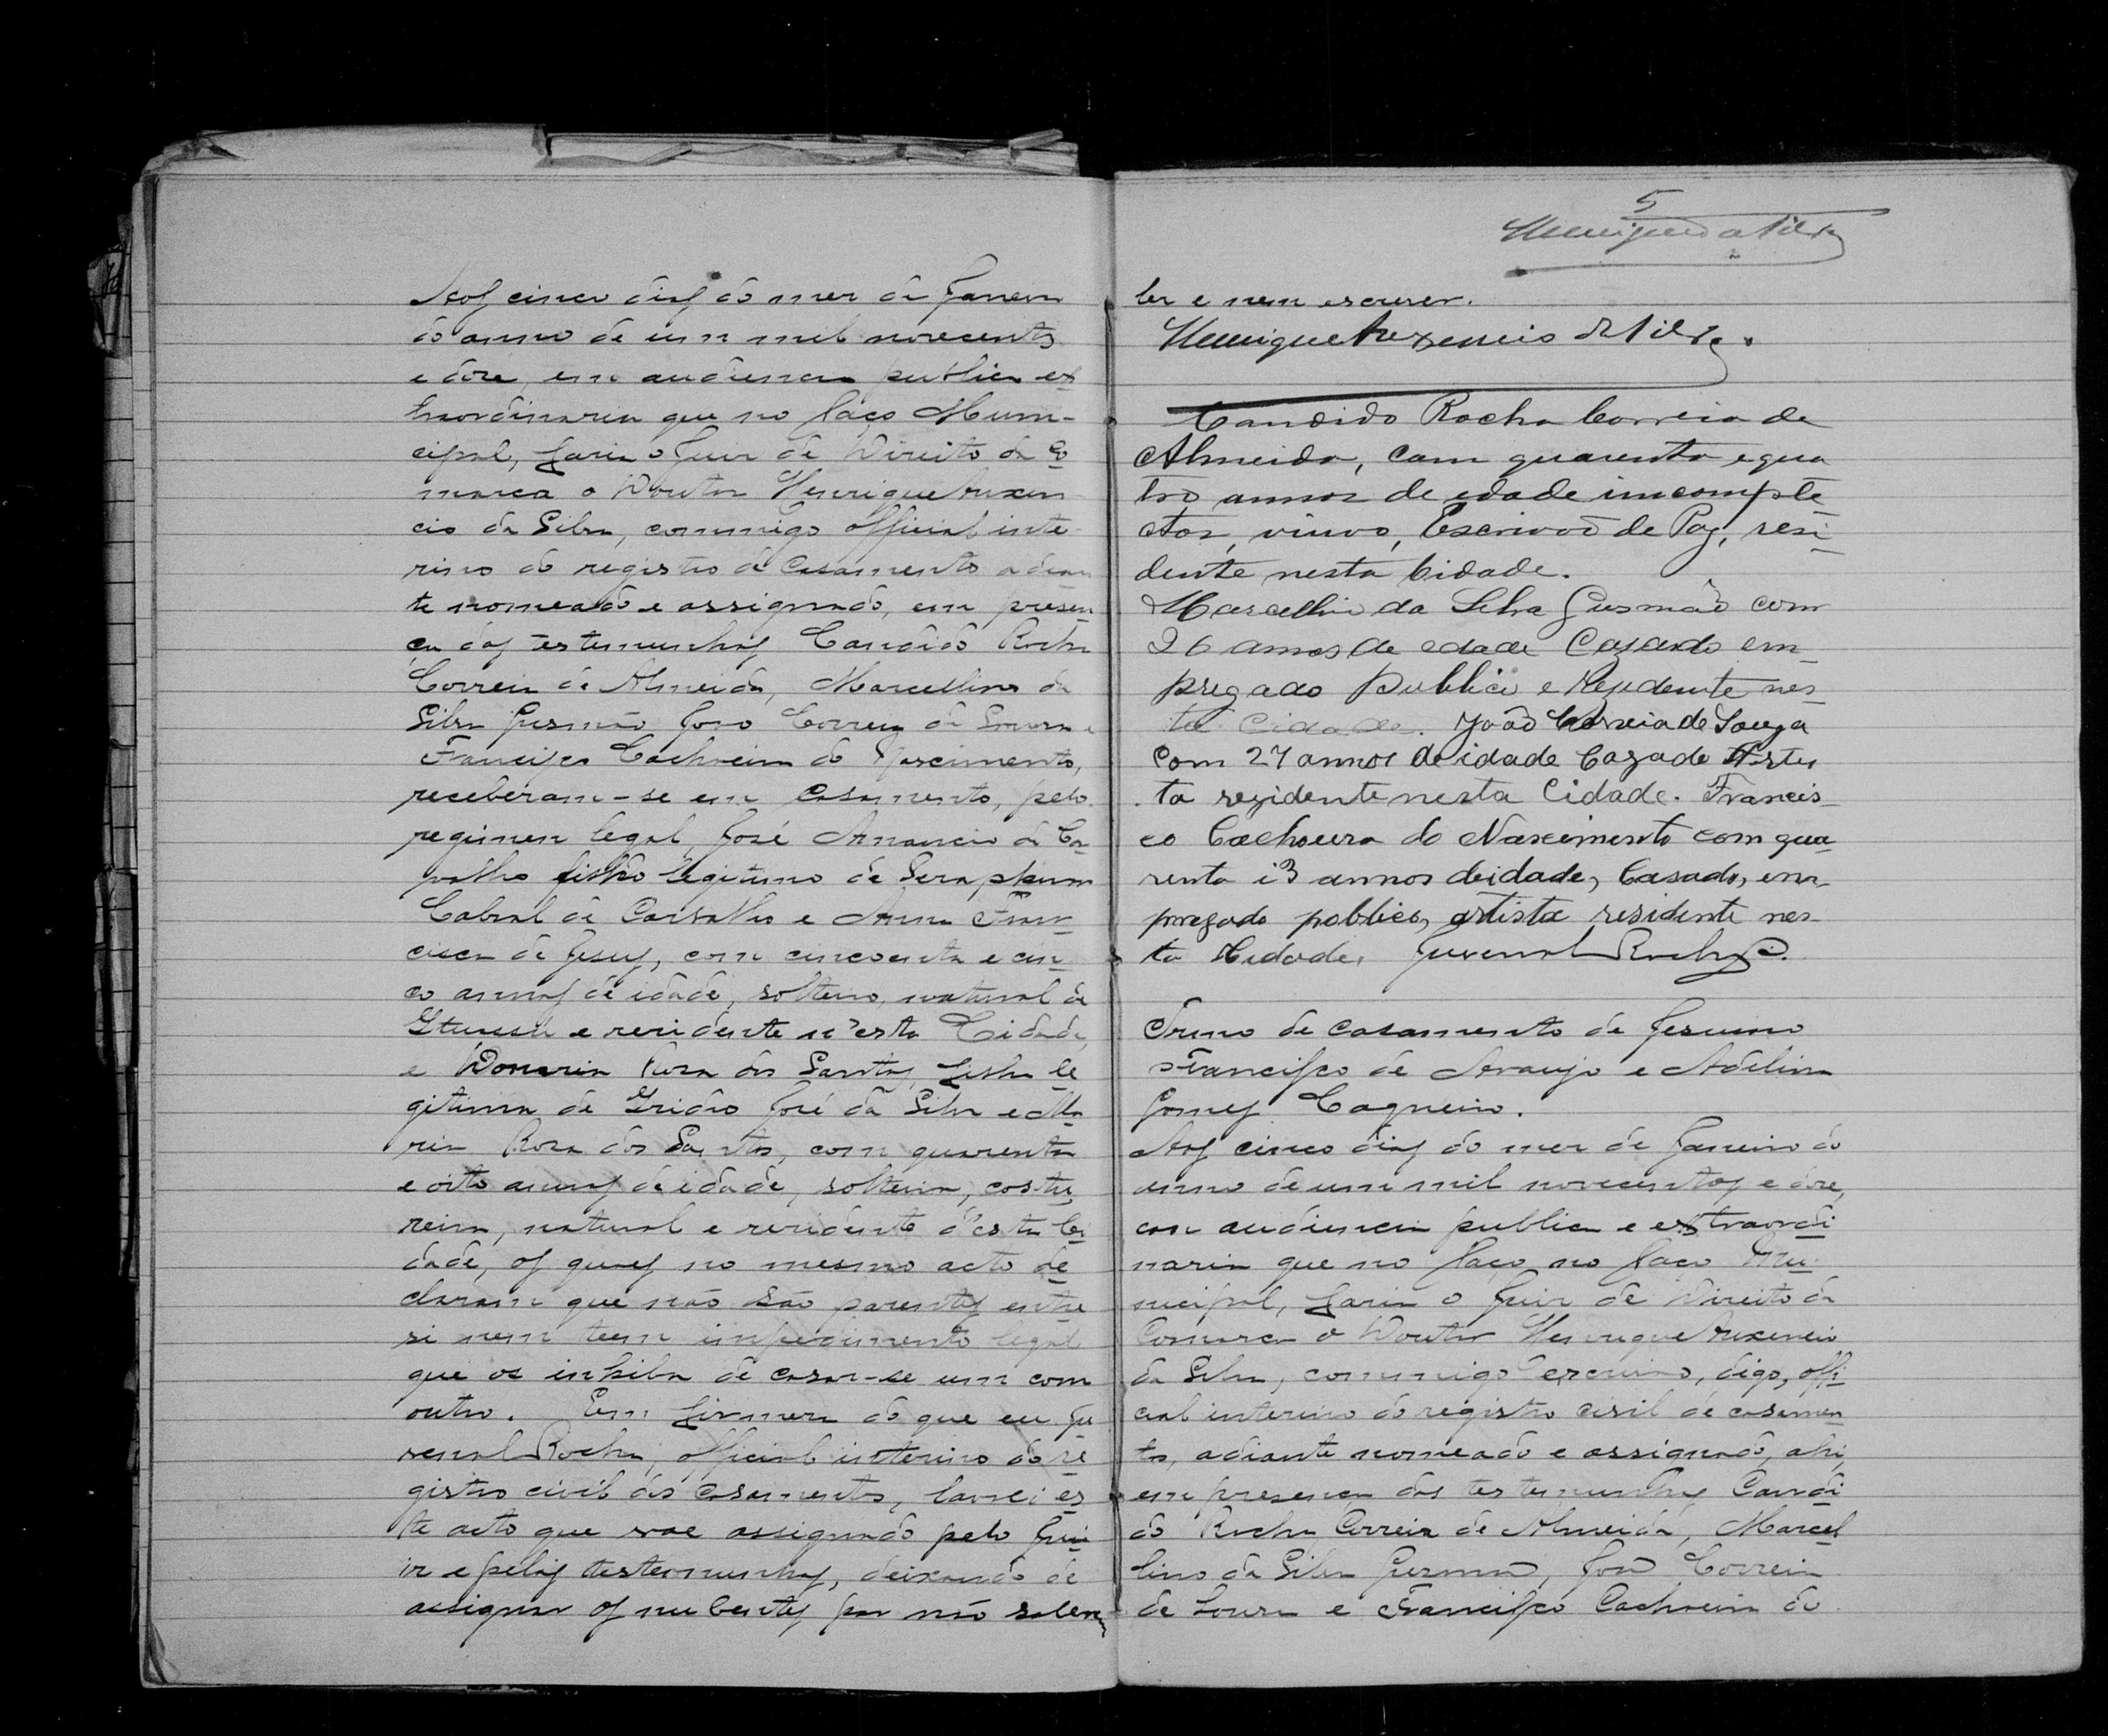 Aos cinco dias do mez de Janeiro
do anno de um mil novecentos
e doze, em audiencia publica ex
traordinaria que no Paço Muni-
cipal, fazia o Juiz de Direito da Co
marca o Doutor Henrique Auxen
cio da Silva, commigo official inte-
rino do registro de Casamento adean
te nomeado e assignado, em presen
ça das testemunhas Candido Rocha
Correia de Almeida, Marcellino da
Silva Gusmão João Correia de Souza e
Francisco Cachoeira do Nascimento,
receberam-se em Casamento, pelo
regimen legal, José Amancio de Ca
valho filho legitimo de Seraphim
Cabral de Carvalho e Anna Fran
cisca de Jesus, com cincoenta e cin
co annos de idade, solteiro, natural de
e residente n'esta Cidade,
e Donaria dos Santos, filha le
gitima de Izidro José da Silva e Ma
ria Roza dos Santos, com quarenta
e oito annos de idade, solteira, costu
reira, natural e rezidente d'esta Ci
dade, os quaes no mesmo acto de
claram que não são parentes entre
si nem teem impedimento legal
que os inhiba de casar-se um com
outro. Em firmeza do que eu Ju
venal Rocha, official interino do re
gistro civil dos Casamentos, lavrei es
te acto que vae assignado pelo Jui
iz e pelas testemunhas, deixando de
assignar os nubentes por não saberem
5
Henrique da Silva
ler e nem escrever.
Henrique Auxencio da Silva.
Candido Rocha Correia de
Almeida, com quarenta e qua
tro annos de edade imcomple
ctos, viuvo, Escrivão de Paz, resi
dente nesta Cidade.
Marcellino da Silva Gusmão com
26 annos de edade Cazado em
pregado Publico e Rezidente nes
ta Cidade. João Correia de Souza
Com 27 annos de idade Cazado Artis
ta rezidente nesta Cidade. Francis
co Cachoeira do Nascimento com qua
renta i 3 annos deidade, Casado, em
pregado publico, artista residente nes
ta Cidade. Juvenal Rocha
Termo de casamento de Jesuino
Francisco de Araujo e Adelina
Gomes Caqueiro.
Aos cinco dias do mez de Janeiro do
anno de um mil novecentos e doze,
em audiencia publica e extraordi
naria que no Paço no Paço Mu-
nicipal, fazia o Juiz de Direito da
Comarca o Doutor Henrique Auxencio
da Silva, commigo escrivão, digo, offi
cial interino do registro civil de casamen
to, adiante nomeado e assignado, ahi,
em presença das testemunhas Candi
do Rocha Correia de Almeida, Marcel
lino da Silva Gusmão, João Correia
de Souza e Francisco Cachoeira do